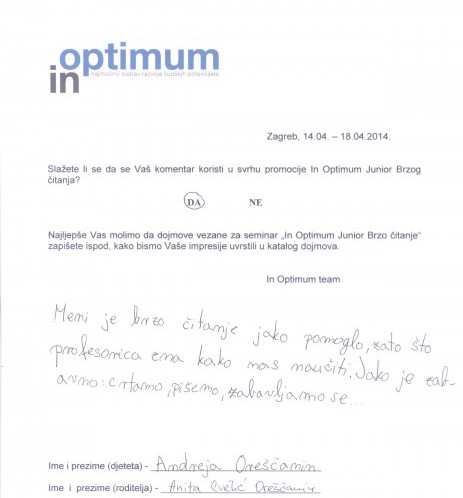 optimum
in
najmoćniji sustav razvoja ljudskih potencijala
Zagreb, 14.04. – 18.04.2014.
Slažete li se da se Vaš komentar koristi u svrhu promocije In Optimum Junior Brzog
čitanja?
DA NE
Najljepše Vas molimo da dojmove vezane za seminar „In Optimum Junior Brzo čitanje“
zapišete ispod, kako bismo Vaše impresije uvrstili u katalog dojmova.
In Optimum team
Meni je brzo čitanje jako pomoglo, zato što
profesorica zna kako nas naučiti. Jako je zab-
avno: crtamo, pišemo, zabavljamo se...
Ime i prezime (djeteta) - Andreja Oreščanin
Ime i prezime (roditelja) - Anita